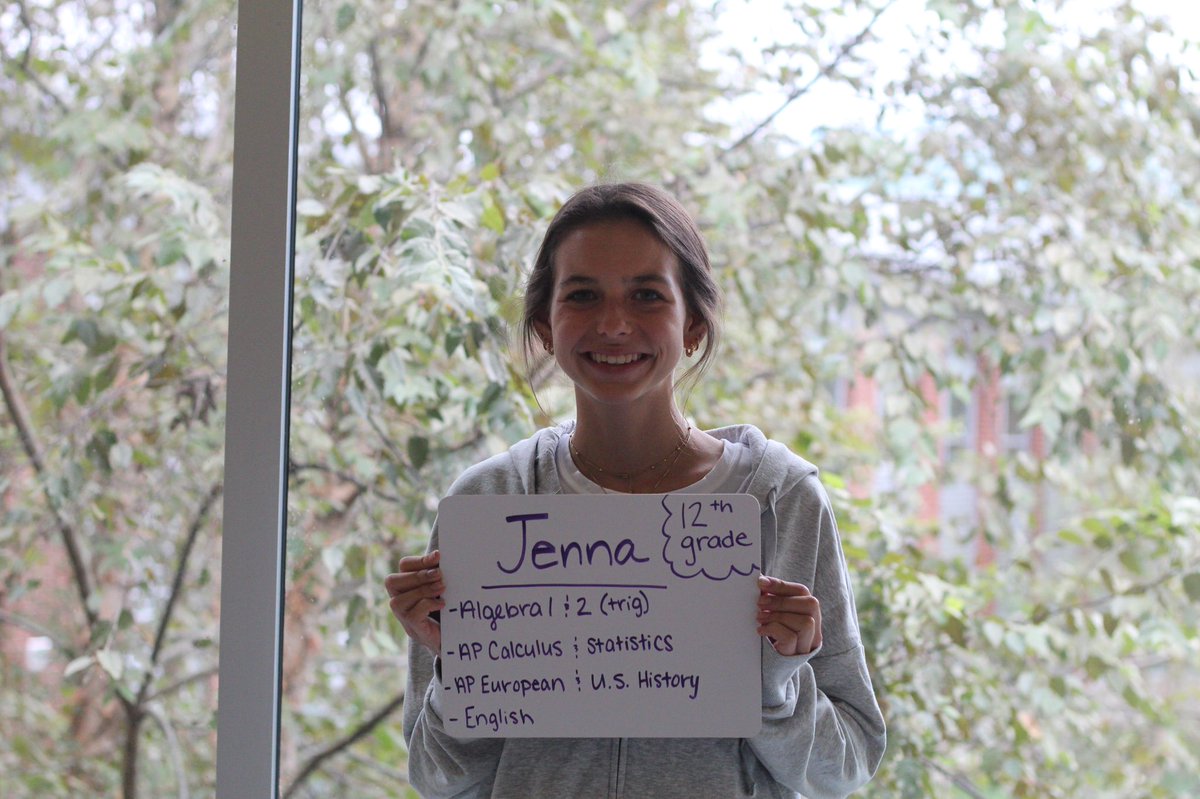 Jenna
12th
grade
-Algebra 1 & 2 (trig)
-AP Calculus & Statistics
-AP European & U.S. History
- English